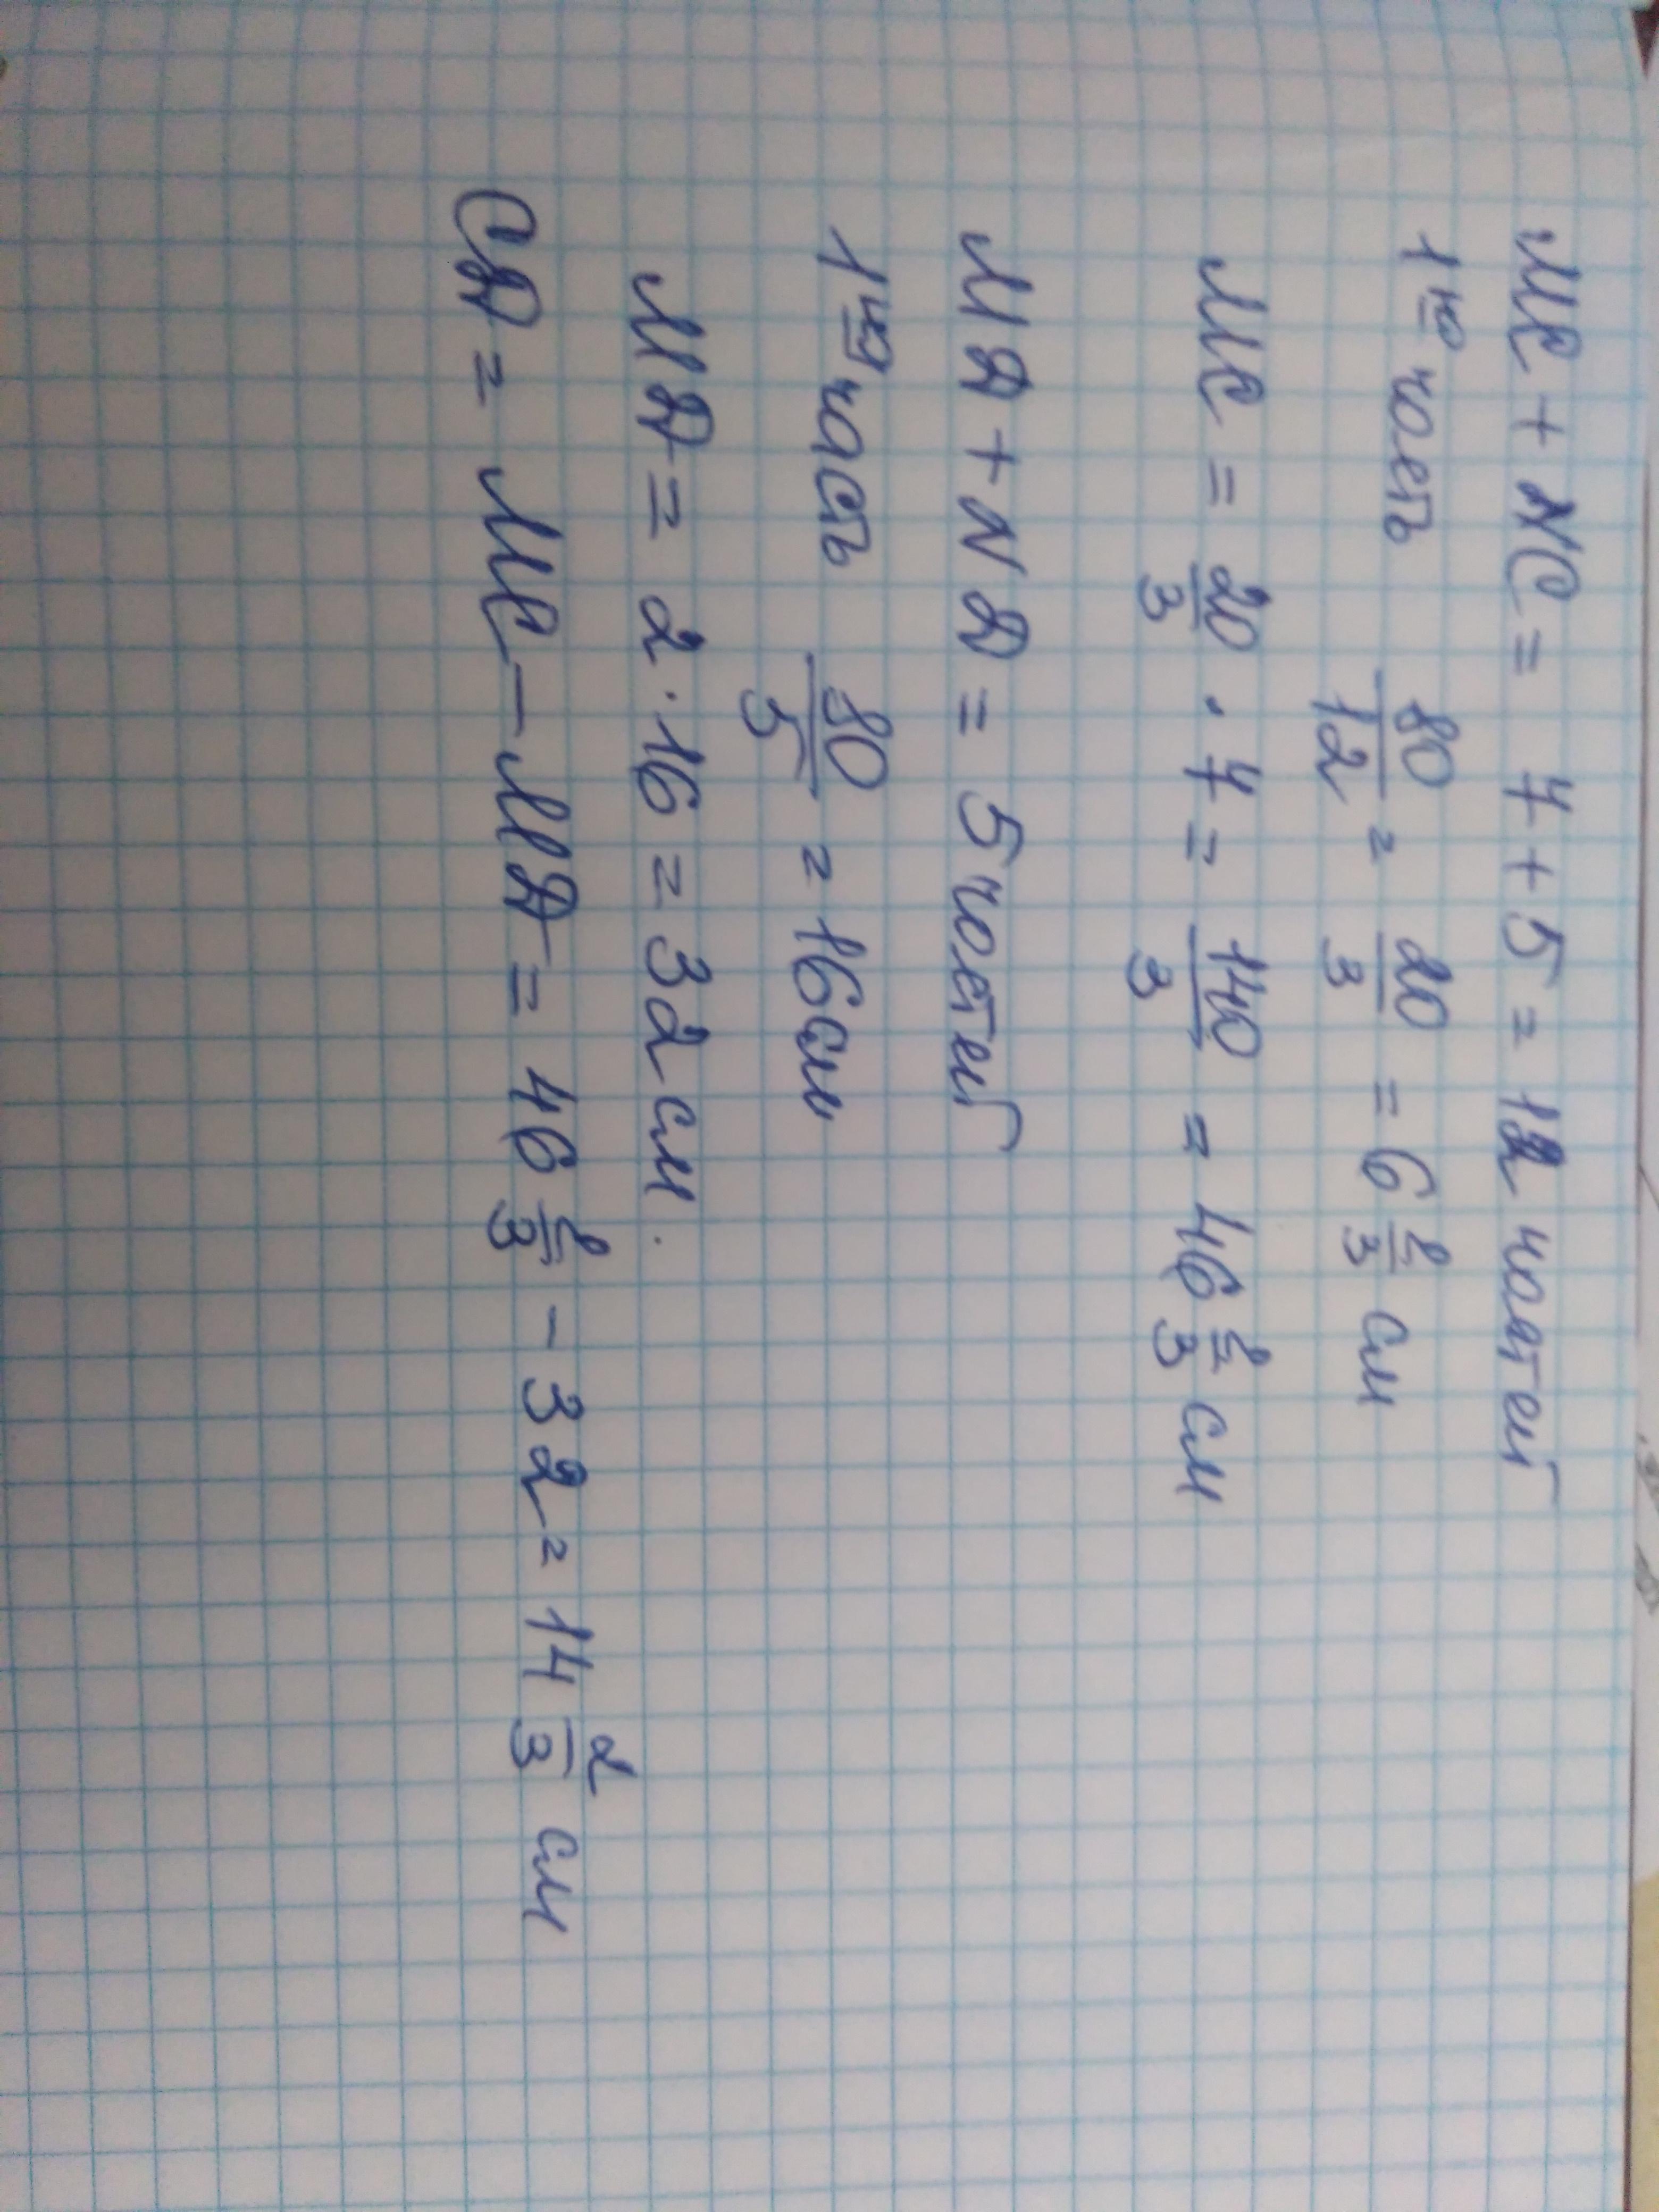 MC + NC = 7 + 5 = 12 частей
1ая часть 80/12 = 20/3 = 6 2/3 см
MC = 20/3 · 7 = 140/3 = 46 2/3 см
МД + NД = 5 частей
1ая часть 80/5 = 16 см
МД = 2 · 16 = 32 см.
СД = МС – МД = 46 2/3 – 32 = 14 2/3 см